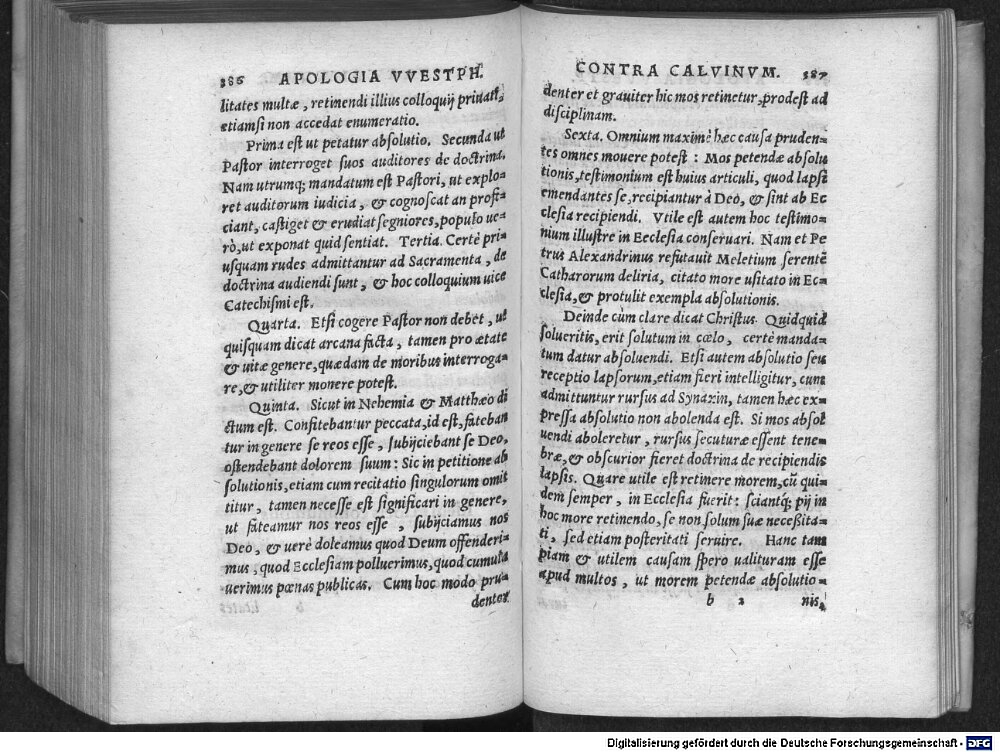 386 APOLOGIA VVESTPH.
litates multæ, retinendi illius colloquij priuati,
ætiamsi non accedat enumeratio.
Prima est ut petatur absolutio. Secunda ut
Pastor interroget suos auditores de doctrina.
Nam utrumq; mandatum est Pastori, ut explo-
ret auditorum iudicia, & cognoscat an profi-
ciant, castiget & erudiat segniores, populo ue-
rò, ut exponat quid sentiat. Tertia. Certè pri-
usquam rudes admittantur ad Sacramenta, de
doctrina audiendi sunt, & hoc colloquium uice
Catechismi est.
Quarta. Etsi cogere Pastor non debet, ut
quisquam dicat arcana facta, tamen pro ætate
& uitæ genere, quædam de moribus interroga-
re, & utiliter monere potest.
Quinta. Sicut in Nehemia & Matthæo di
ctum est. Confitebantur peccata, id est, fateban
tur in genere se reos esse, subijciebant se Deo,
ostendebant dolorem suum: Sic in petitione ab
solutionis, etiam cum recitatio singulorum omit
titur, tamen necesse est significari in genere,
ut fateamur nos reos esse, subijciamus nos
Deo, & uerè doleamus quod Deum offenderi-
mus, quod Ecclesiam polluerimus, quod cumula
uerimus pœnas publicas. Cum hoc modo pru-
denter
CONTRA CALVINVM. 387
denter et grauiter hic mos retinetur, prodest ad
disciplinam.
Sexta. Omnium maximè hæc causa pruden-
tes omnes mouere potest: Mos petendæ absolu
tionis, testimonium est huius articuli, quod lapsi
emendantes se, recipiantur à Deo, & sint ab Ec
clesia recipiendi. Vtile est autem hoc testimo-
nium illustre in Ecclesia conseruari. Nam et Pe
trus Alexandrinus refutauit Meletium serentē
Catharorum deliria, citato more usitato in Ec-
clesia, & protulit exempla absolutionis.
Deinde cùm clare dicat Christus. Quidquid
solueritis, erit solutum in cœlo, certè manda-
tum datur absoluendi. Etsi autem absolutio seu
receptio lapsorum, etiam fieri intelligitur, cum
admittuntur rursus ad Synaxin, tamen hæc ex-
pressa absolutio non abolenda est. Si mos absol
uendi aboleretur, rursus secuturæ essent tene-
bræ, & obscurior fieret doctrina de recipiendis
lapsis. Quare utile est retinere morem, cū qui-
dem semper, in Ecclesia fuerit: sciantq́; pij in
hoc more retinendo, se non solum suæ necessita-
ti, sed etiam posteritati seruire. Hanc tam
piam & utilem causam spero ualituram esse
apud multos, ut morem petendæ absolutio-
b 2 nis,
Digitalisierung gefördert durch die Deutsche Forschungsgemeinschaft - DFG